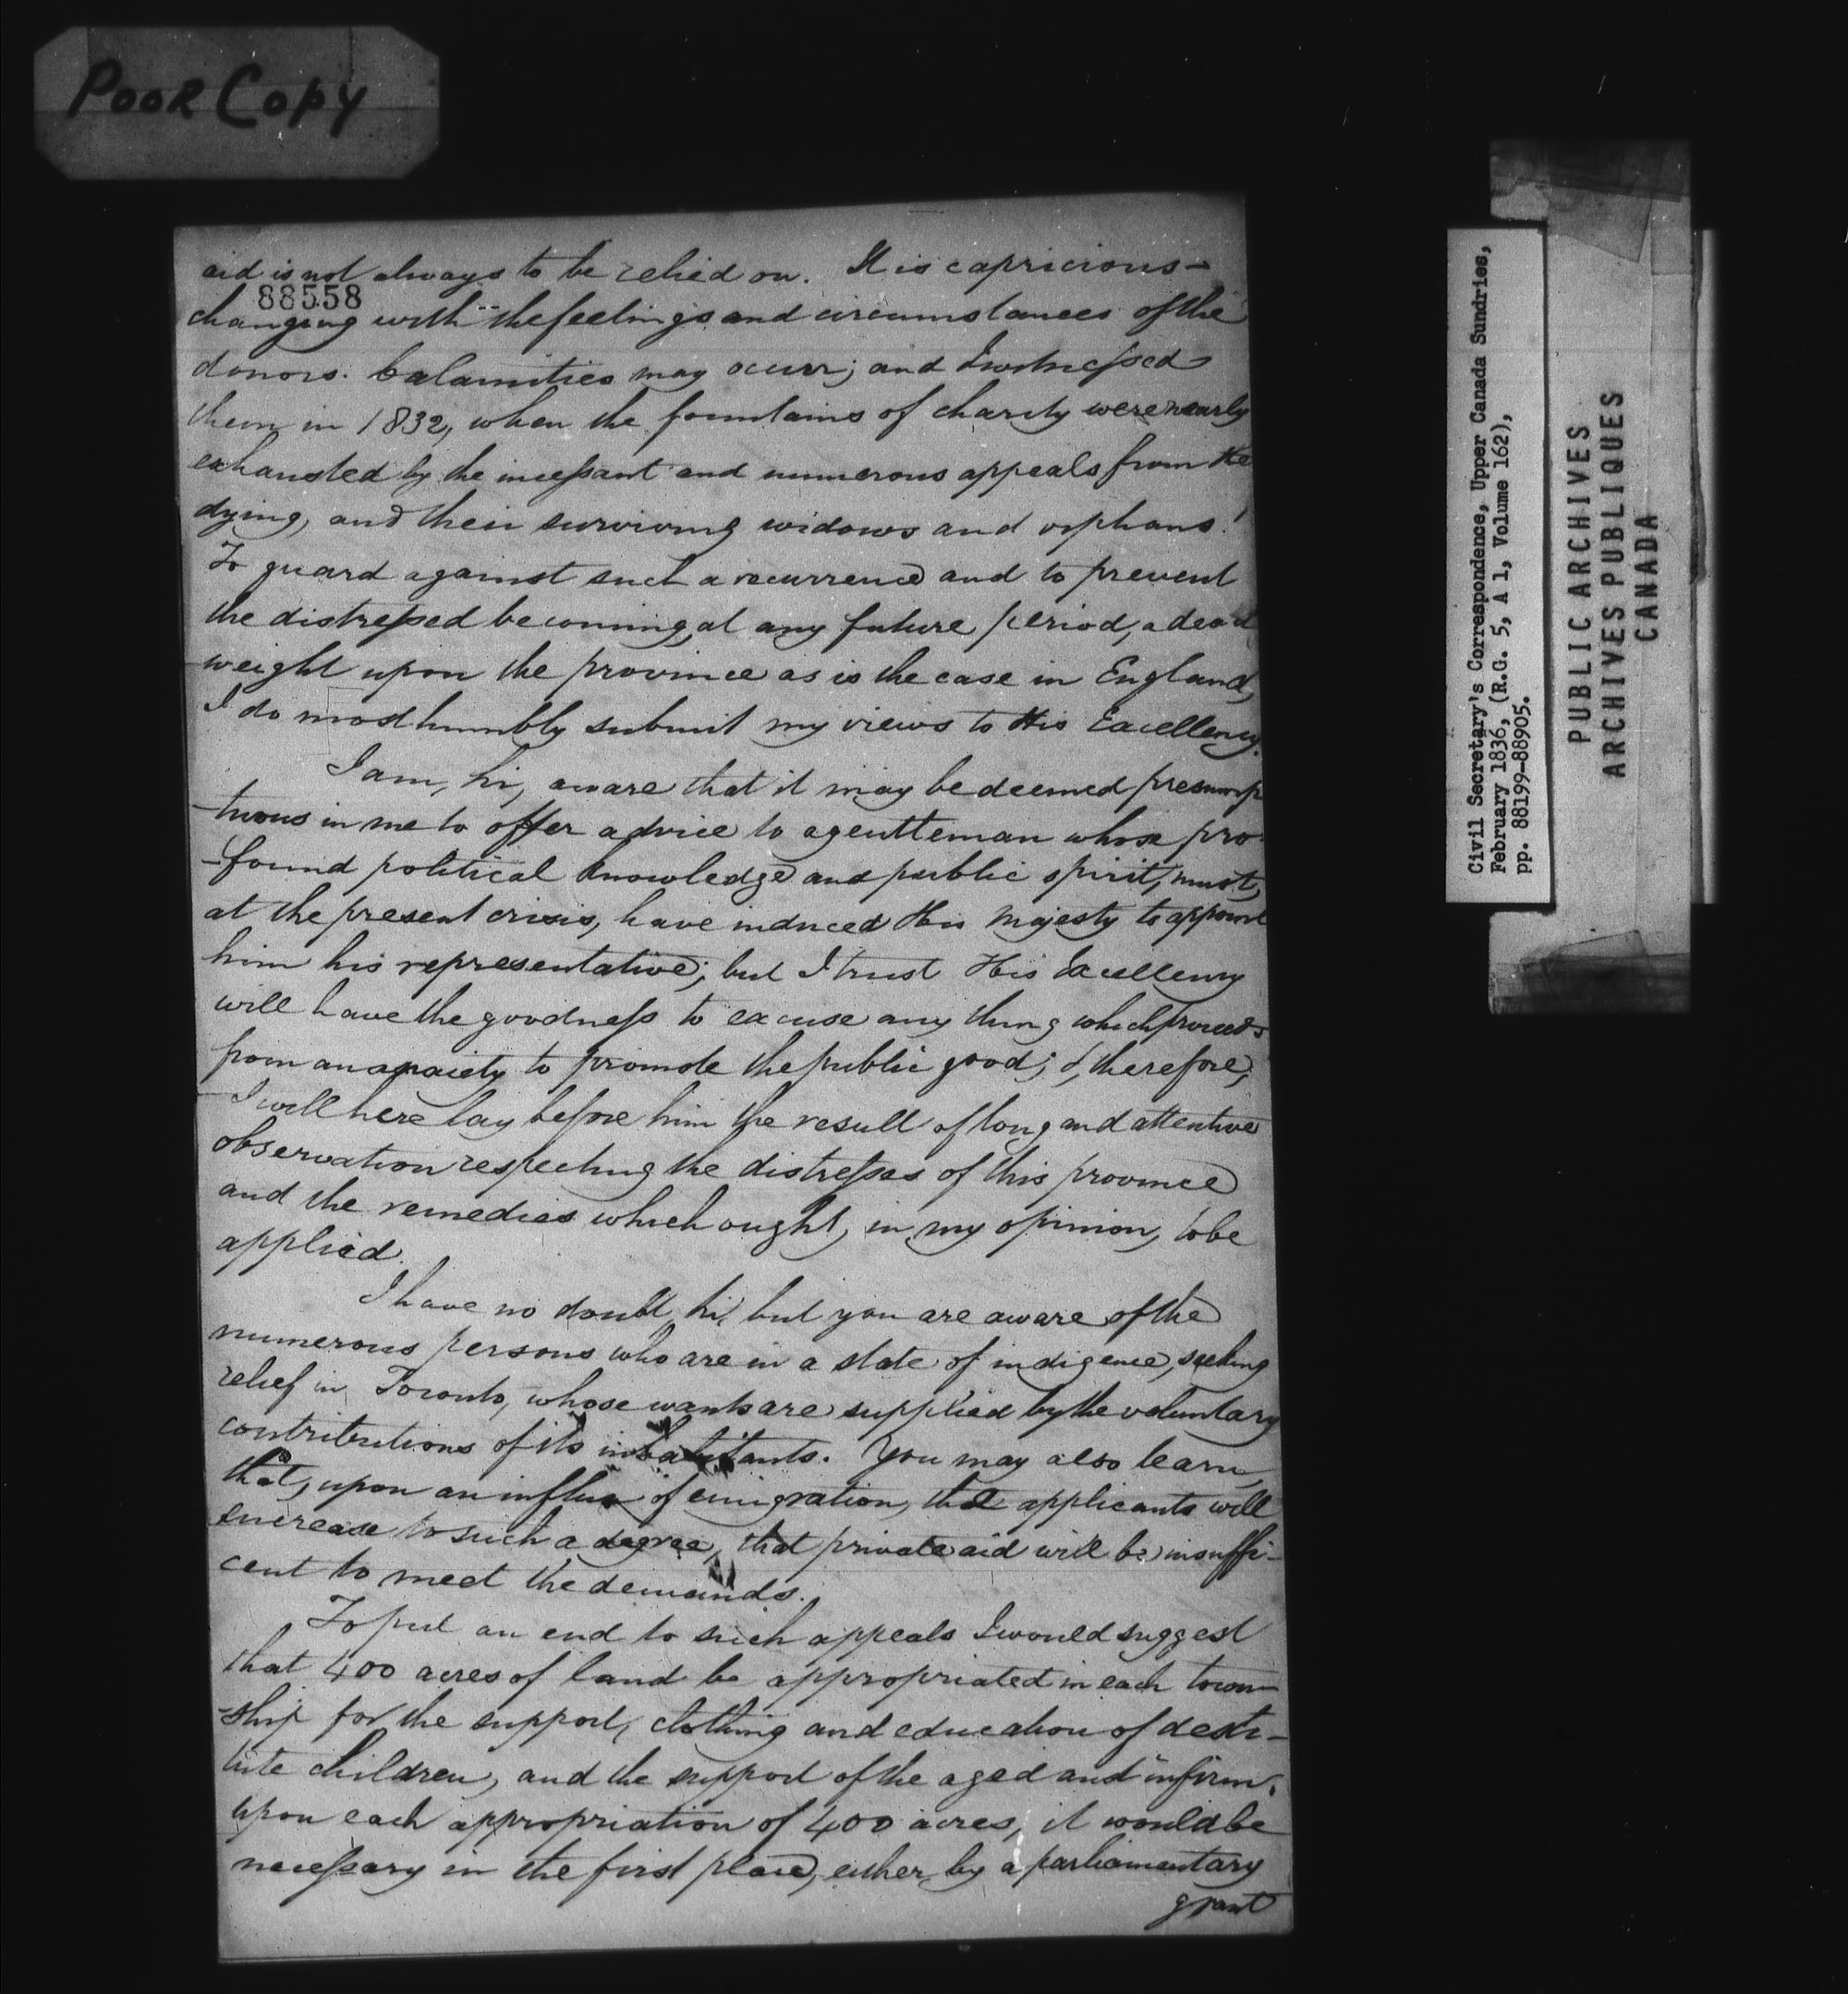 Poor Copy
aid is not always to be relied on. It is capricious-
88558
changing with the feelings and circumstances of the
donors. Calamities may occur; and I witnessed
them in 1832, when the fountains of charity were nearly
exhausted by the incessant and numerous appeals from the
dying, and their surviving widows and orphans!
To guard against such a recurrence and to prevent
the distressed becoming, at any future period, a dead
weight upon the province as is the case in England,
I do most humbly submit my views to His Excellency.
I am, Sir, aware that it may be deemed presump
-tuous in me to offer advice to a gentleman whose pro-
-found political knowledge and public spirit, must,
at the present crisis, have induced His Majesty to appoint
him his representative; but I trust His Excellency
will have the goodness to excuse any thing which proceeds
from an anxiety to promote the public good; &, therefore,
I will here lay before him the result of long and attentive
observation respecting the distresses of this province
and the remedies which ought, in my opinion, to be
applied.
I have no doubt, Sir, but you are aware of the
numerous persons who are in a state of indigence, seeking
relief in Toronto, whose wants are supplied by the voluntary
contributions of its inhabitants. You may also learn,
that, upon an influx of emigration, the applicants will
encrease to such a degree, that private aid will be insuffi-
cent to meet the demands.
To put an end to such appeals I would suggest
that 400 acres of land be appropriated in each town-
-ship for the support, clothing and education of desti-
tute children, and the support of the aged and infirm.
Upon each appropriation of 400 acres, it would be
necessary in the first place, either by a parliamentary
grant
Civil Secretary's Correspondence, Upper Canada Sundries,
February 1836, (R.G. 5, A 1, Volume 162),
pp. 88199-88905.
PUBLIC ARCHIVES
ARCHIVES PUBLIQUES
CANADA